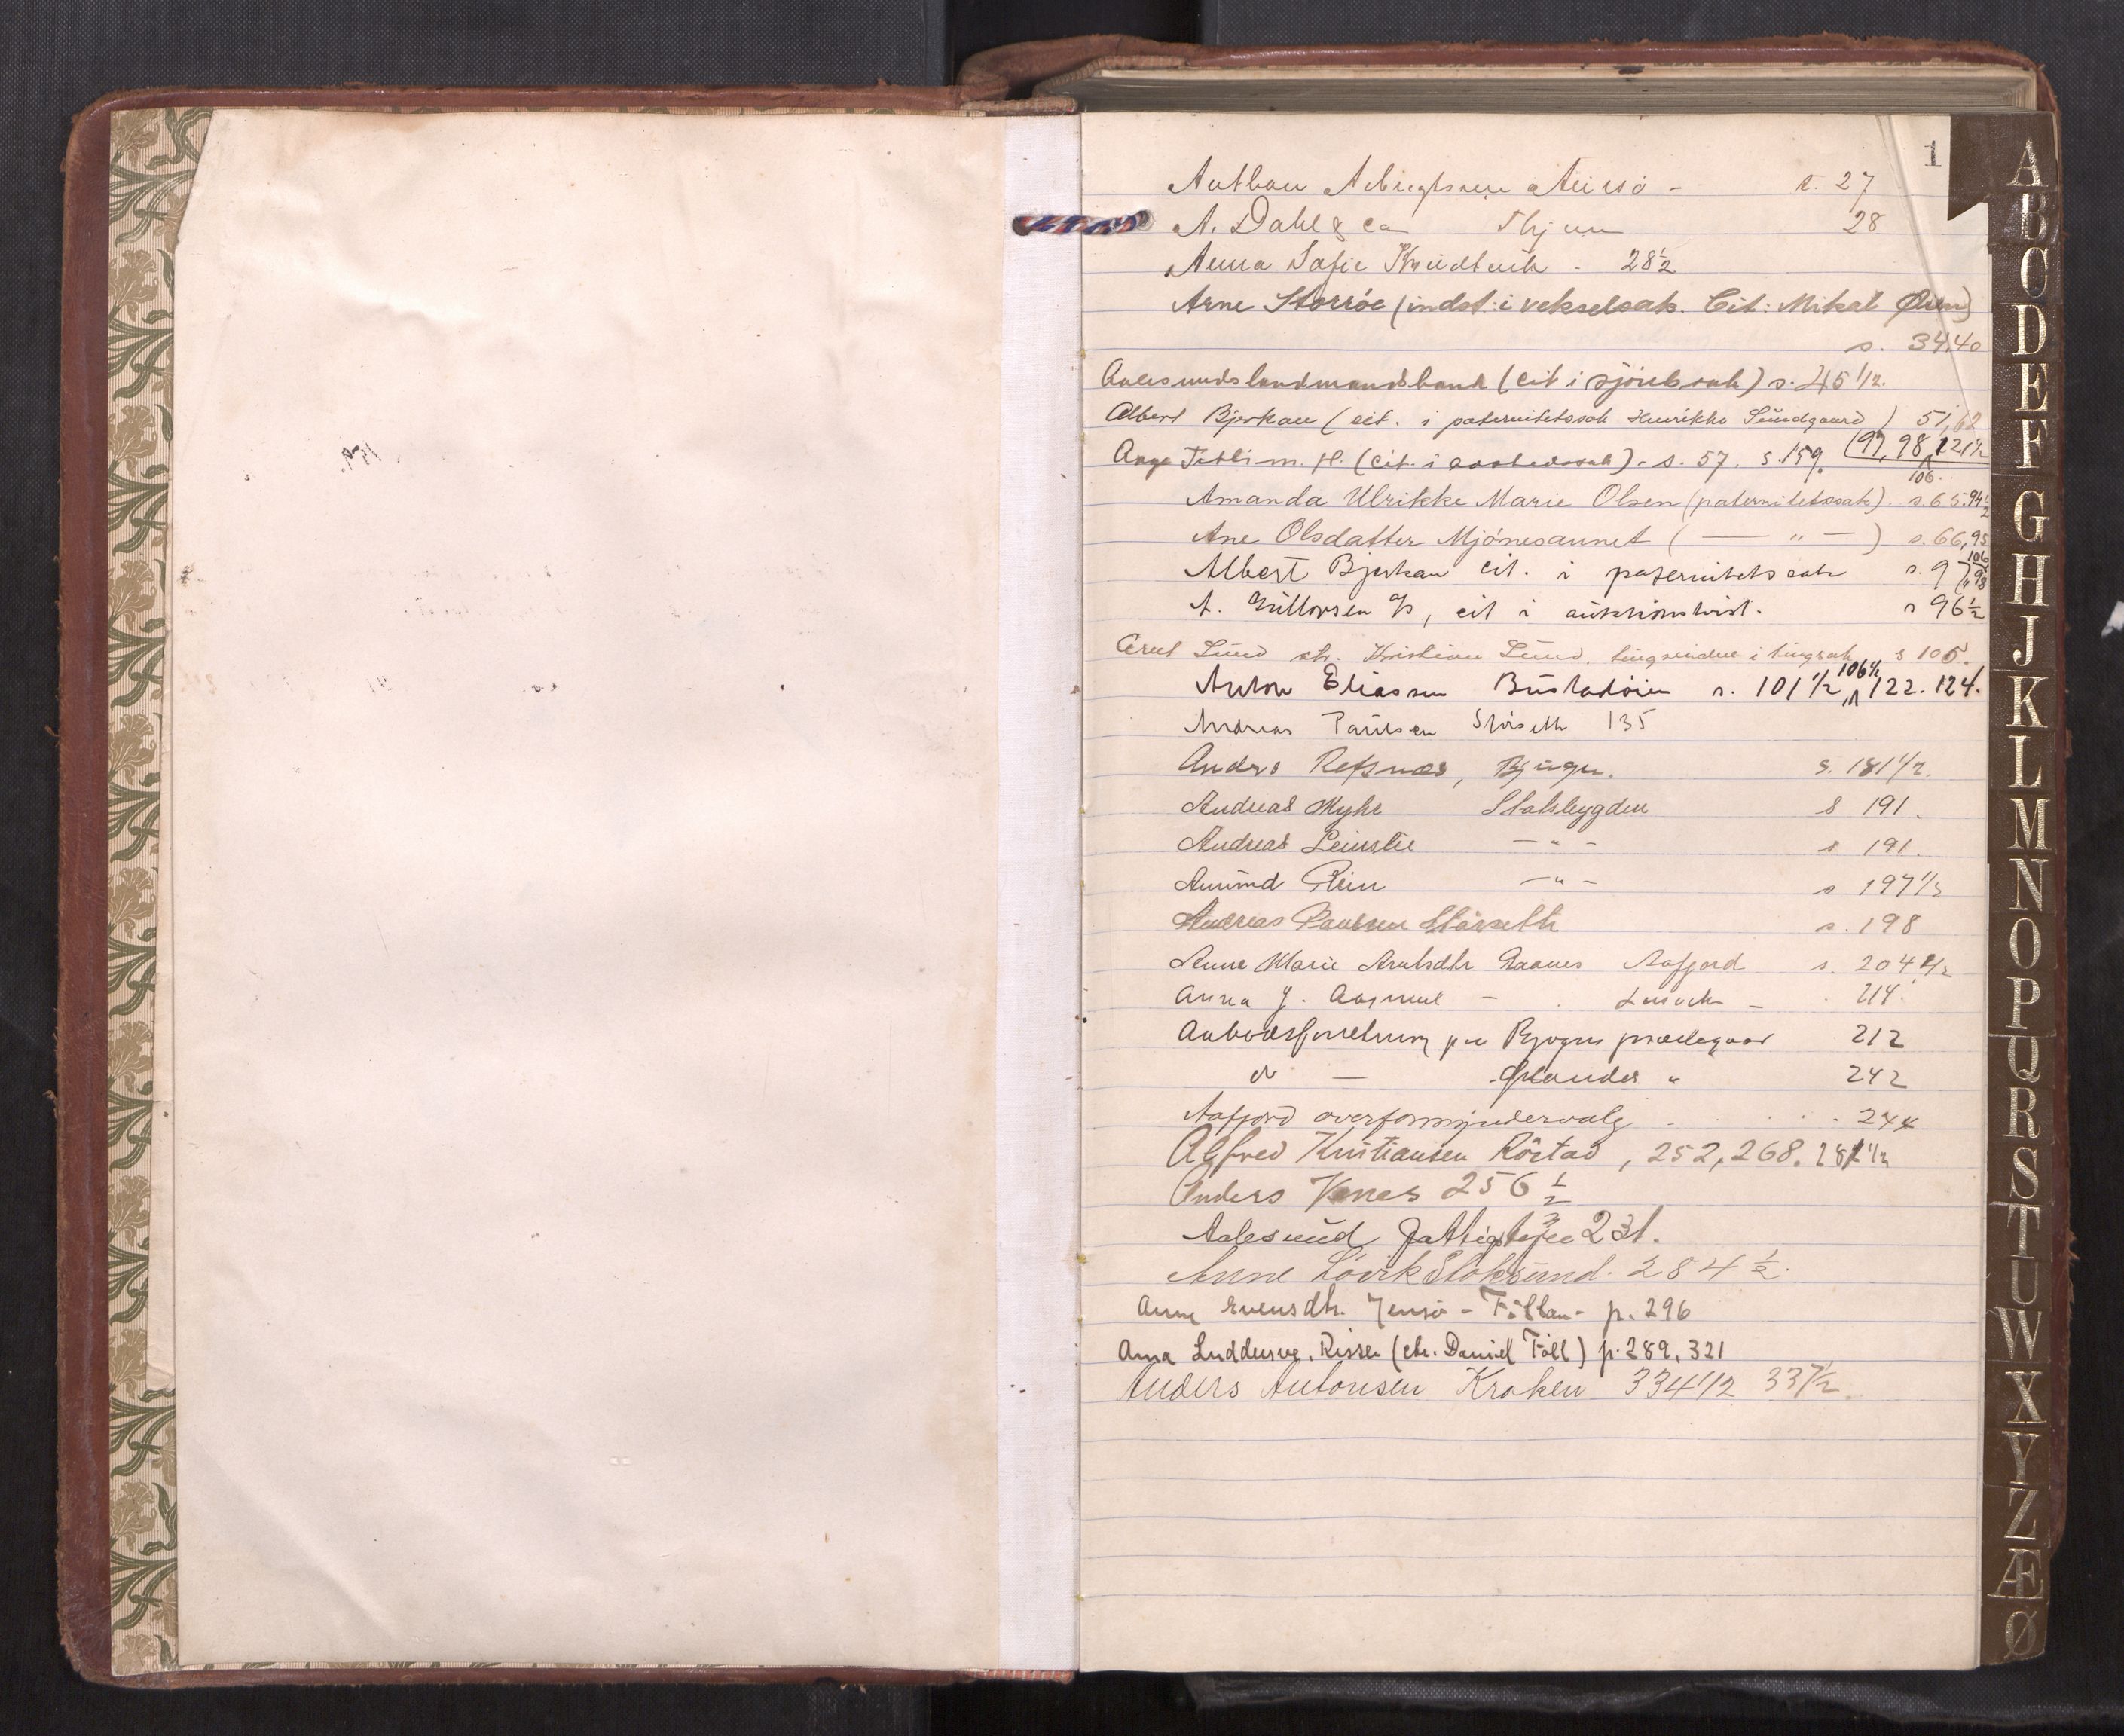 1
s. 27
A. Dahl & Co 28
Anna Sofie 28½
Arne Storröe (indst. i vekselsak. Cit: Mikal Øien)
s. 34,40
Aalesunds landmandsbank (cit i sjörets sak) s. 45 1/2.
Albert Bjerkan (cit. i paternitetssak Henrikke Sundgaard) 51,62
(97, 98, 121½
m. H. (cit. i s. 57. s. 159.
106
Amanda Ulrikke Marie Olsen (paternitetssak) s. 65. 94½
Ane Olsdatter Mjönesaunet ( — „ — ) s. 66, 95
Albert Bjerkan cit. i paternitetssak s. 97 106 98
A. Gullovsen , cit i auktionstvist. s 96½
Lund str. Kristian Lund, i tingsak s 105.
Anton Eliassen Bustadöien s. 101 1/2 106½ 122. 124.
Andreas Paulsen Störseth 135
Anders Refsnæs, Bjugn. s. 181 1/2.
Andreas Myhr Stadsbygden s 191.
Andreas Leinslie — „ — s 191.
Amund Rein — „ — s 197 1/2
Andreas Paulsen Störseth s. 198
Anne Marie Arntsdtr Raanes Aafjord s. 204 1/2
Anna J. Leksvik — 214.
Aabodsforretning paa Bjugn prestegaar 212
do — Ørlandet „ 242
Aafjord overformyndervalg 244
Alfred Kristiansen Röstad, 252, 268. 281 1/2
Anders Venes 256 ½
Aalesund fattigstyre 231.
Anne Lövik Stoksund. 284 ½
Anne Evensdtr. Jensö - Fillan - p. 296
Anna , Rissen (ctr. Daniel Föll) p. 289, 321
Anders Antonsen Kroken 334 1/2 337½
A
B
C
D
E
F
G
H
J
K
L
M
N
O
P
Q
R
S
T
U
W
X
Y
Z
Æ
Ø